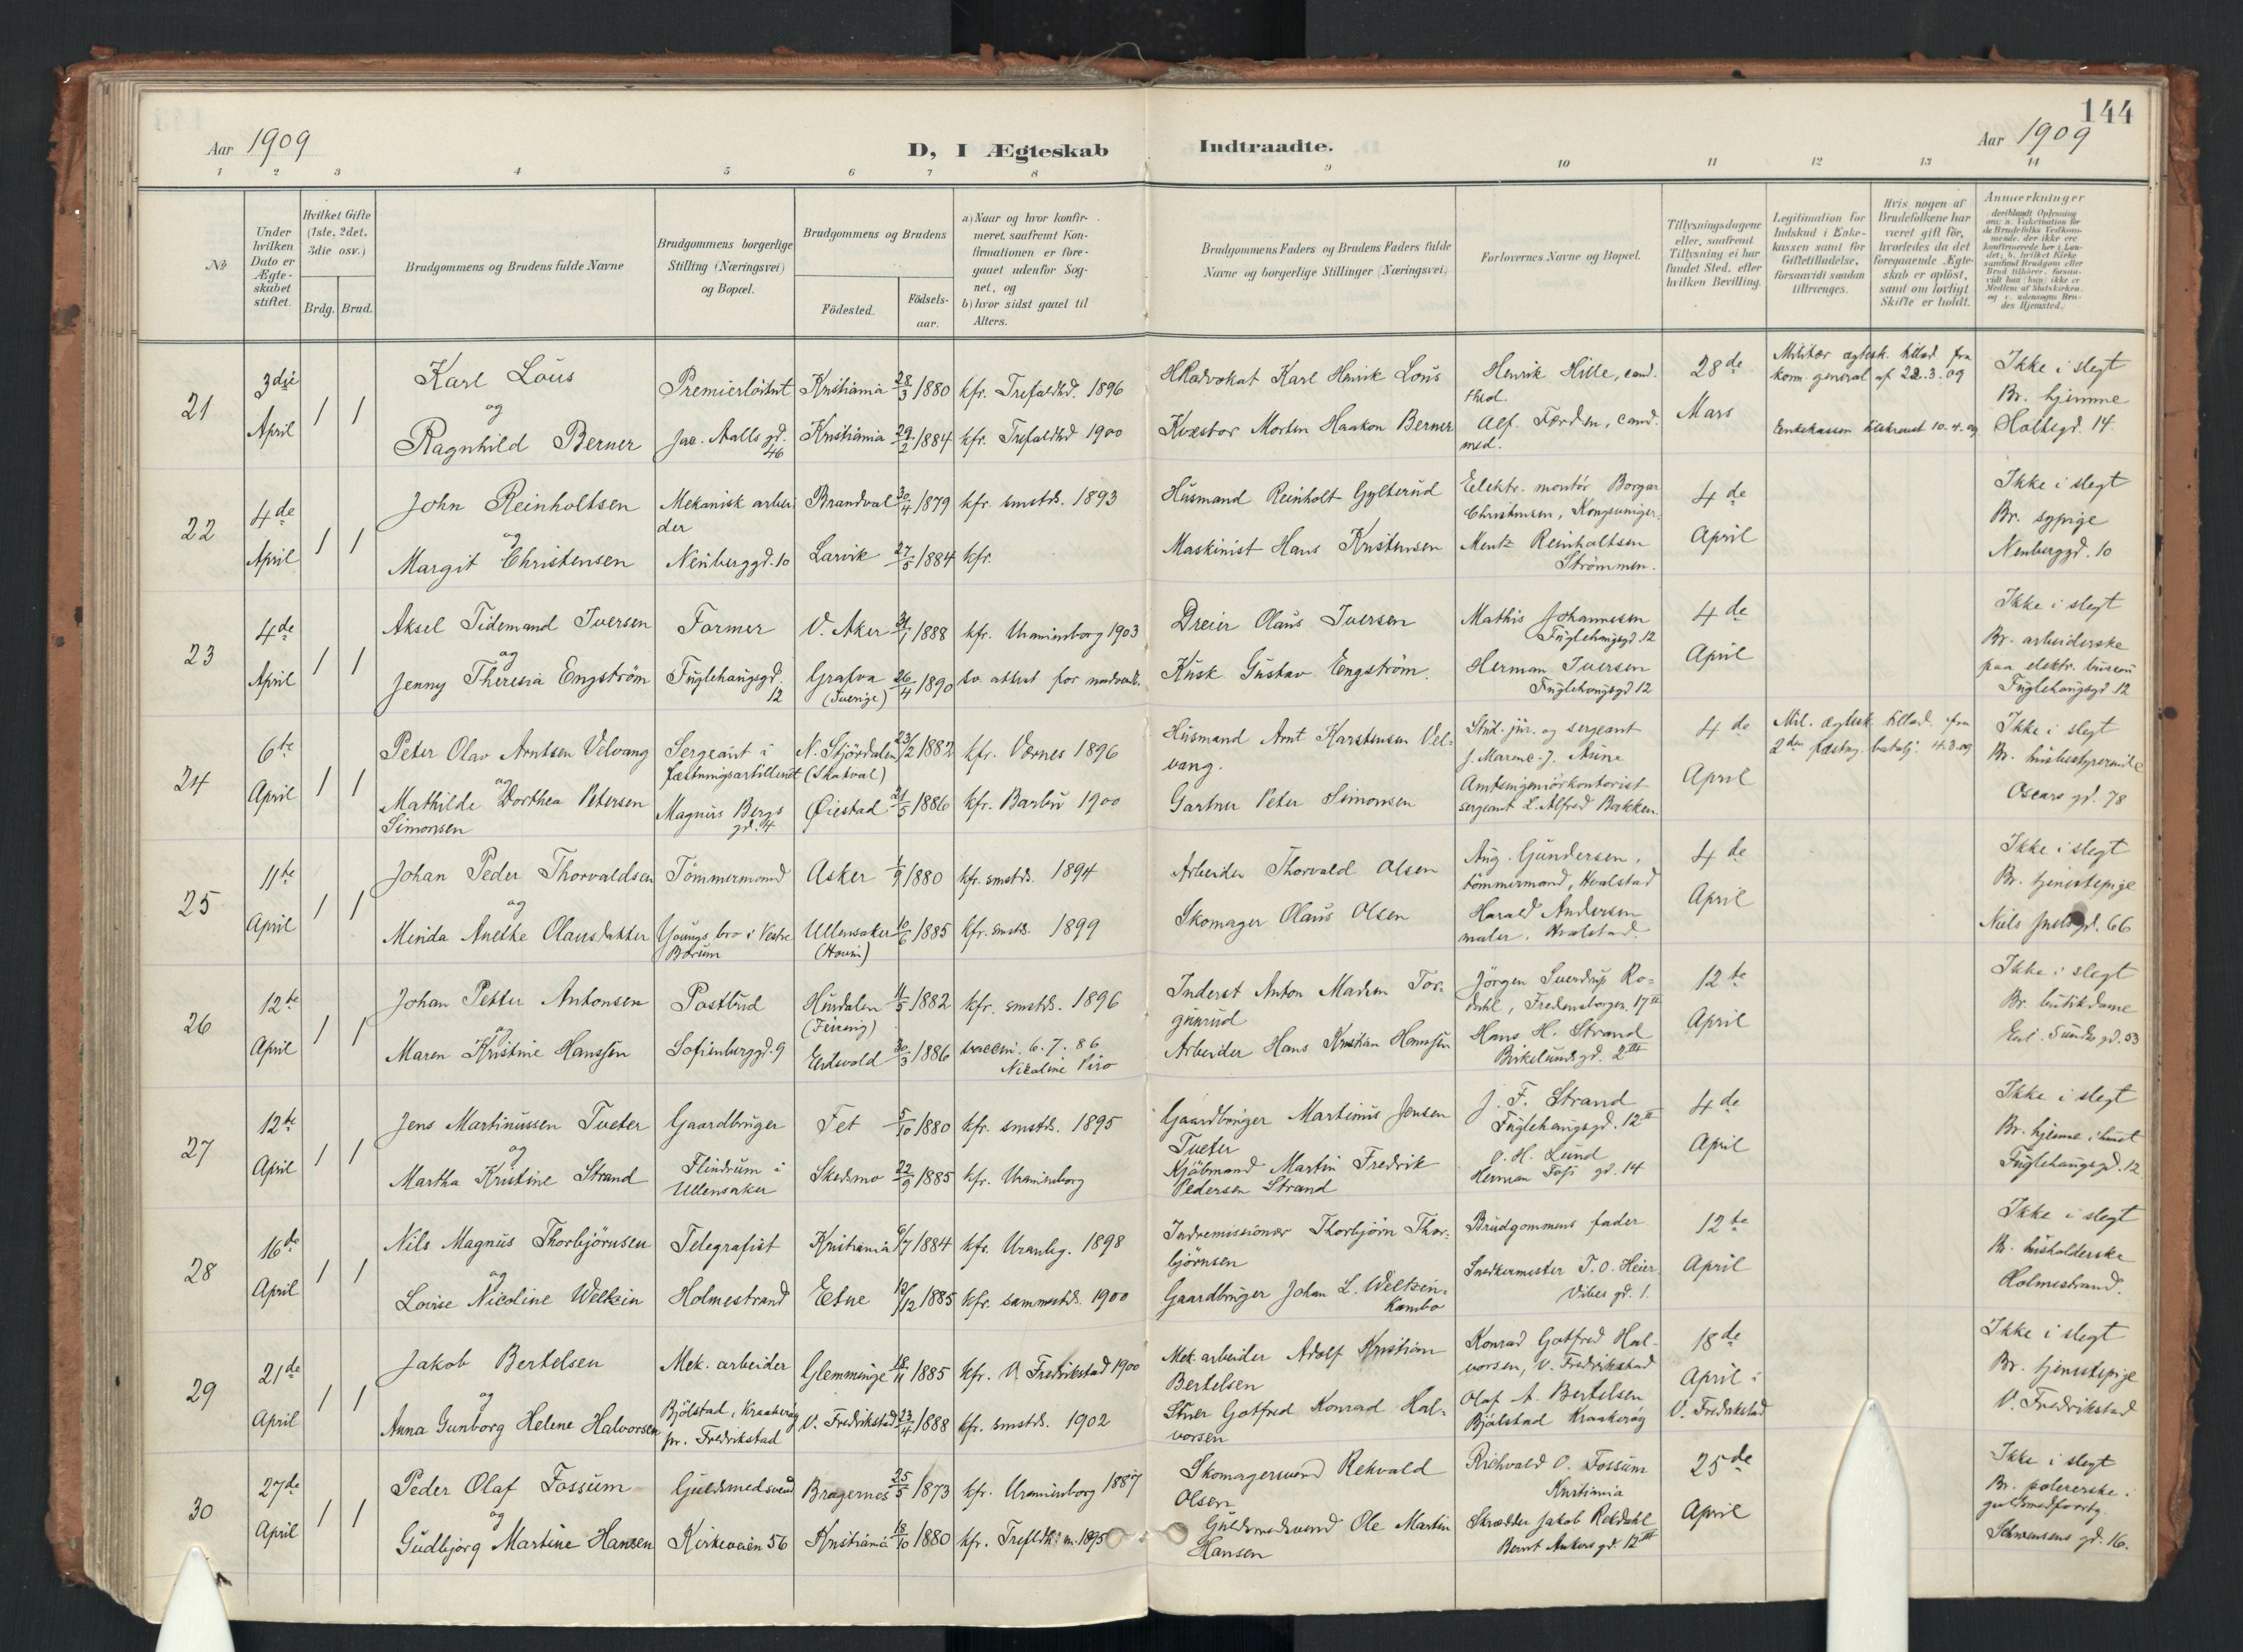 144
Aar 1909
D, I Ægteskab Indtraadte.
Aar 1909
1 2 3 4 5 6 7 8 9 10 11 12 13 14
No
Under hvilken Dato er Ægteskabet stiftet.
Hvilket Gifte (1ste, 2det, 3die osv.)
Brdg. Brud.
Brudgommens og Brudens fulde Navne
Brudgommens borgerlige Stilling (Næringsvei) og Bopæl.
Brudgommens og Brudens
Fødested.
Fødselsaar.
a) Naar og hvor konfirmeret, saafremt Konfirmationen er foregaaet udenfor Sognet, og
b) hvor sidst gaael til Alters.
Brudgommens Faders og Brudens Faders fulde Navne og borgerlige Stillinger (Næringsvei)
Forlovernes Navne og Bopæl.
Tillysningsdagene eller, saafremt Tillysning ei har fundet Sted, efter hvilken Bevilling.
Legitimation for Indskud i Enkekassen samt for Giftetilladelse, forsaavidt saadan tiltrænges.
Hvis nogen af Brudefolkene har været gift før, hvorledes da det foregaaende Ægteskab er opløst, samt om lovligt Skifte er holdt.
Anmærkninger
21
3die April
1 1
Karl Lous
og
Ragnhild Berner
Premierløitnt
Jac. Aalls gd. 46
Kristiania 28/3 1880 kfr. Trefoldhd. 1896
Kristiania 29/2 1884 kfr. Trefoldhd 1900
HRadvokat Karl Henrik Lous
Kvæstor Morten Haakon Berner
Henrik Hille, cand. theol.
Alf. Førden, cand. med.
28de Mars
Militær ægtesk. tillad. fra kom. general af 22.3.09
Enkekassen tilskrevet 10.4.09
Ikke i slegt
Br. hjemme
Holtegd. 14
22
4de April
1 1
John Reinholtsen
og
Margit Christensen
Mekanisk arbeider
Neuberggd. 10
Brandval 30/4 1879 kfr. smstds. 1893
Larvik 27/5 1884 kfr.
Husmand Reinholt Gylterud
Maskinist Hans Kristensen
Elektr. montør Borgar Christensen, Kongsvinger.
Mentz Reinholtsen
Strømmen.
4de April
Ikke i slegt
Br. sypige
Neuberggd. 10
23
4de April
1 1
Aksel Tidemand Iversen
og
Jenny Theresia Engström
Former
Fuglehaugsgd. 12
V. Aker 31/1 1888 kfr. Uranienborg 1903
Grafva (Sverige) 26/4 1890 sv. attest for nadverd.
Dreier Olaus Iversen
Kusk Gustav Engström.
Mathis Johannesen
Fuglehaugsgd 12
Herman Iversen
Fuglehaugsgd 12
4de April
Ikke i slegt
Br. arbeiderske
paa elektr. bureau
Fuglehaugsgd 12
24
6te April
1 1
Peter Olav Arntsen Velvang
og
Mathilde Dorthea Petersen Simonsen
Sergeant i fæstningsartilleriet
Magnus Bergs gd. 4
N. Stjørdalen (Skatval) 23/2 1882 kfr. Værnes 1896
Øiestad 21/5 1886 kfr. Barbu 1900
Husmand Arnt Karstensen Velvang.
Gartner Peter Simonsen
Stud. jur. og sergeant
Aune
Amtsingeniørkontorist
sergeant L. Alfred Bakken.
4de April
Mil. ægtesk. tillad. fra
2den fæstng. batalj. 4.3.09
Ikke i slegt
Br. husbestyrerinde
Oscars gd. 78
25
11te April
1 1
Johan Peder Thorvaldsen
og
Minda Anette Olausdatter
Tømmermand
Youngs bro i Vestre Bærum
Asker 1/9 1880 kfr. smstds. 1894
Ullensaker (Hovin) 10/6 1885 kfr. smstds. 1899
Arbeider Thorvald Olsen
Skomager Olaus Olsen
Aug. Gundersen,
tømmermand, Hvalstad
Harald Andersen
maler. Hvalstad.
4de April
Ikke i slegt
Br. tjenestepige
Niels Juels gd. 66
26
12te April
1 1
Johan Petter Antonsen
og
Maren Kristine Hanssen
Postbud
Sofienberggd. 9
Hurdalen (Feiring) 11/5 1882 kfr. smstds. 1896
Eidsvold 30/3 1886 vaccin. 6.7.86
Nicoline Piro
Inderst Anton Madsen Torgunrud
Arbeider Hans Kristian Hanssen
Jørgen Sverdrup Rodahl, Fredensborgvn. 17 II
Hans H. Strand
Birkelunds gd. 2 III
12te April
Ikke i slegt
Br. butikdame
Eil. Sunds gd. 53
27
12te April
1 1
Jens Martinussen Tveter
og
Martha Kristine Strand
Gaardbruger
Flindrum i Ullensaker
Fet 5/10 1880 kfr. smstds. 1895
Skedsmo 22/9 1885 kfr. Uranienborg
Gaardbruger Martinus Jensen Tveter
Kjøbmand Martin Fredrik Pedersen Strand
J. F. Strand
Fuglehaugsgd. 12 II
O. H. Lund
Herman Foss gd. 14
4de April
Ikke i slegt
Br. hjemme i huset
Fuglehaugsgd. 12
28
16de April
1 1
Nils Magnus Thorbjørnsen
og
Lovise Nicoline Weltzin
Telegrafist
Holmestrand
Kristiania 6/7 1884 kfr. Uranbg. 1898
Etne 12/12 1885 kfr. sammestds. 1900
Indremissionær Thorbjørn Thorbjørnsen
Gaardbruger Johan L. Weltzin.
Kambo
Brudgommens fader
Snedkermester T. O. Heier.
Vibes gd. 1.
12te April
Ikke i slegt
Br. husholderske
Holmestrand.
29
21de April
1 1
Jakob Bertelsen
og
Anna Gunborg Helene Halvorsen
Mek. arbeider
Bjølstad, Kraakerøy
pr. Fredrikstad
Glemminge 18/11 1885 kfr. V. Fredrikstad 1900
V. Fredrikstad 23/4 1888 kfr. smstds. 1902
Mek. arbeider Adolf Kristian Bertelsen
Stuer Gotfred Konrad Halvorsen
Konrad Gotfred Halvorsen, V. Fredrikstad
Olaf A. Bertelsen
Bjølstad Kraakerøy
18de April i V. Fredrikstad
Ikke i slegt
Br. tjenestepige
V. Fredrikstad
30
27de April
1 1
Peder Olaf Fossum
og
Gudbjørg Martine Hansen
Guldsmedsvend
Kirkeveien 56
Bragernes 25/5 1873 kfr. Uranienborg 1887
Kristiania 18/10 1880 kfr. Trefldh. m. 1895
Skomagersvend Rekvald Olsen
Guldsmedsvend Ole Martin Hansen
Richvald O. Fossum
Kristiania
Skrædder Jakob Rekdahl
Bernt Ankers gd. 12 III
25de April
Ikke i slegt
Br. polererske i
guldsmedforretg.
Schwensens gd. 16.